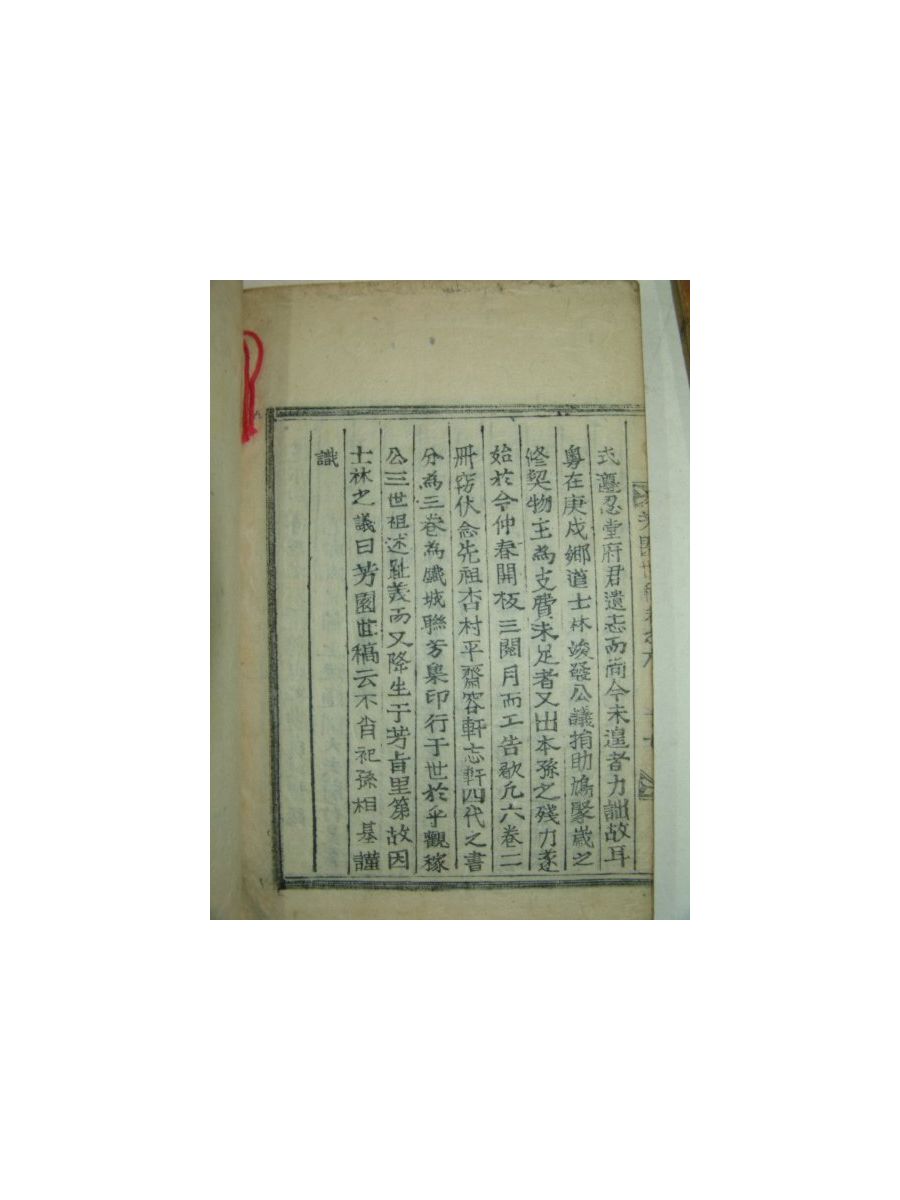 式蘧忍堂府君遺志而尙今未遑者力詘故耳
粤在庚戌鄕道士林竣發公議捐助鳩聚歲之
修契物主為支費未足者又出本孫之残力遂
始於今仲春開板三閱月而工告歇凢六卷二
冊窃伏念先祖杏村平齋容軒忘軒四代之書
分為三卷為鐵城聯芳集印行于世於乎觀稼
公三世祖述趾義而又降生于芳旨里第故因
士林之議曰芳園世稿云不肖祀孫相基謹
識
芳園世稿卷之六